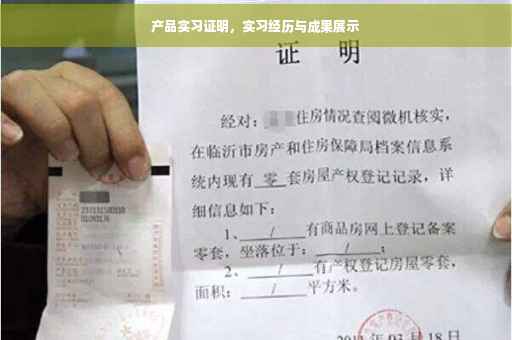 产品实习证明，实习经历与成果展示
证 明
经对：住房情况查阅微机核实，
在临沂市房产和住房保障局档案信息系
统内现有 零 套房屋产权登记记录，详
细信息如下：
1、 / 有商品房网上登记备案
零套，坐落位于： / ；
2、 / 有产权登记房屋零套，
面积： / 平方米。
月18日